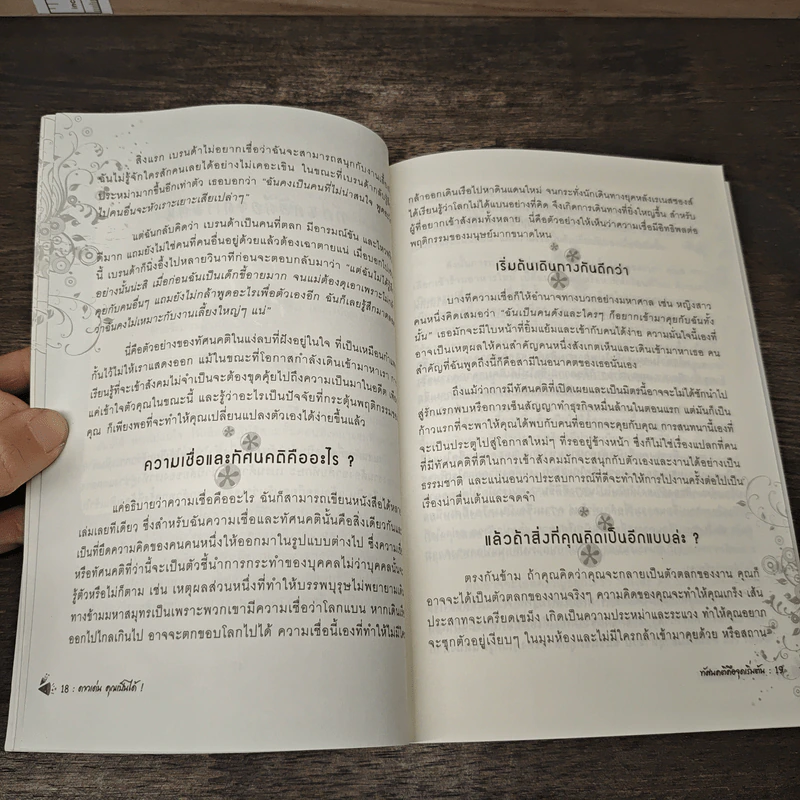 สิ่งแรก เบรนด้าไม่อยากเชื่อว่าฉันจะสามารถสนุกกับงานเลี้ยง
ฉันไม่รู้จักใครสักคนเลยได้อย่างไม่เคอะเขิน ในขณะที่เบรนด้ากลับรู้สึก
ประหม่ามากขึ้นอีกเท่าตัว เธอบอกว่า “ฉันคงเป็นคนที่ไม่น่าสนใจ
ไปคนอื่นจะหัวเราะเยาะเสียเปล่าๆ”
แต่ฉันกลับคิดว่า เบรนด้าเป็นคนที่ตลก มีอารมณ์ขัน และ
ดีมาก แถมยังไม่ใช่คนที่คนอื่นอยู่ด้วยแล้วต้องเฉาตายแน่ เมื่อบอกไป
นี้ เบรนด้าก็นิ่งอึ้งไปหลายวินาทีก่อนจะตอบกลับมาว่า “แต่ฉันไม่ได้รู้สึก
อย่างนั้นน่ะสิ เมื่อก่อนฉันเป็นเด็กขี้อายมาก จนแม่ต้องดุเอาเพราะไม่
คุยกับคนอื่นๆ แถมยังไม่กล้าพูดอะไรเพื่อตัวเองอีก ฉันก็เลยรู้สึกมาตลอด
ว่าฉันคงไม่เหมาะกับงานเลี้ยงใหญ่ๆ แน่”
นี่คือตัวอย่างของทัศนคติในแง่ลบที่ฝังอยู่ในใจ ที่เป็นเหมือนกำแพง
กั้นไว้ไม่ให้เราแสดงออก แม้ในขณะที่โอกาสกำลังเดินเข้ามาหาเรา
เรียนรู้ที่จะเข้าสังคมไม่จำเป็นจะต้องขุดคุ้ยไปถึงความเป็นมาในอดีต
แค่เข้าใจตัวคุณในขณะนี้ และรู้ว่าอะไรเป็นปัจจัยที่กระตุ้นพฤติกรรมของ
คุณ ก็เพียงพอที่จะทำให้คุณเปลี่ยนแปลงตัวเองได้ง่ายขึ้นแล้ว
ความเชื่อและทัศนคติคืออะไร ?
แค่อธิบายว่าความเชื่อคืออะไร ฉันก็สามารถเขียนหนังสือได้หลาย
เล่มเลยทีเดียว ซึ่งสำหรับฉันความเชื่อและทัศนคตินั้นคือสิ่งเดียวกันและ
เป็นที่ยึดความคิดของคนคนหนึ่งให้ออกมาในรูปแบบต่างไป ซึ่งความเชื่อ
หรือทัศนคติที่ว่านี้จะเป็นตัวชี้นำการกระทำของบุคคลไม่ว่าบุคคลนั้นจะ
รู้ตัวหรือไม่ก็ตาม เช่น เหตุผลส่วนหนึ่งที่ทำให้บรรพบุรุษไม่พยายามเดิน
ทางข้ามมหาสมุทรเป็นเพราะพวกเขามีความเชื่อว่าโลกแบน หากเดินเรือ
ออกไปไกลเกินไป อาจจะตกขอบโลกไปได้ ความเชื่อนี้เองที่ทำให้ไม่มีใคร
18 : ดาวเด่น คุณเป็นได้ !
กล้าออกเดินเรือไปหาดินแดนใหม่ จนกระทั่งนักเดินทางยุคหลังเรเนสซองส์
ได้เรียนรู้ว่าโลกไม่ได้แบนอย่างที่คิด จึงเกิดการเดินทางที่ยิ่งใหญ่ขึ้น สำหรับ
ผู้ที่อยากเข้าสังคมทั้งหลาย นี่คือตัวอย่างให้เห็นว่าความเชื่อมีอิทธิพลต่อ
พฤติกรรมของมนุษย์มากขนาดไหน
เริ่มต้นเดินทางกันดีกว่า
บางทีความเชื่อก็ให้อำนาจทางบวกอย่างมหาศาล เช่น หญิงสาว
คนหนึ่งคิดเสมอว่า “ฉันเป็นคนดังและใครๆ ก็อยากเข้ามาคุยกับฉันทั้ง
นั้น” เธอมักจะมีใบหน้าที่ยิ้มแย้มและเข้ากับคนได้ง่าย ความมั่นใจนี้เองที่
อาจเป็นเหตุผลให้คนสำคัญคนหนึ่งสังเกตเห็นและเดินเข้ามาหาเธอ คน
สำคัญที่ฉันพูดถึงนี้ก็คือสามีในอนาคตของเธอนั่นเอง
ถึงแม้ว่าการมีทัศนคติที่เปิดเผยและเป็นมิตรนี้อาจจะไม่ได้ชักนำไป
สู่รักแรกพบหรือการเซ็นสัญญาทำธุรกิจหมื่นล้านในตอนแรก แต่มันก็เป็น
ก้าวแรกที่จะพาให้คุณได้พบกับคนที่อยากจะคุยกับคุณ การสนทนานี้เองที่
จะเป็นประตูไปสู่โอกาสใหม่ๆ ที่รออยู่ข้างหน้า ซึ่งก็ไม่ใช่เรื่องแปลกที่คน
ที่มีทัศนคติที่ดีในการเข้าสังคมมักจะสนุกกับตัวเองและงานได้อย่างเป็น
ธรรมชาติ และแน่นอนว่าประสบการณ์ที่ดีจะทำให้การไปงานครั้งต่อไปเป็น
เรื่องน่าตื่นเต้นและจดจำ
แล้วถ้าสิ่งที่คุณคิดเป็นอีกแบบล่ะ ?
ตรงกันข้าม ถ้าคุณคิดว่าคุณจะกลายเป็นตัวตลกของงาน คุณก็
อาจจะได้เป็นตัวตลกของงานจริงๆ ความคิดของคุณจะทำให้คุณเกร็ง เส้น
ประสาทจะเครียดเขม็ง เกิดเป็นความประหม่าและระแวง ทำให้คุณอยาก
จะซุกตัวอยู่เงียบๆ ในมุมห้องและไม่มีใครกล้าเข้ามาคุยด้วย หรือสถาน-
ทัศนคติคือจุดเริ่มต้น : 19